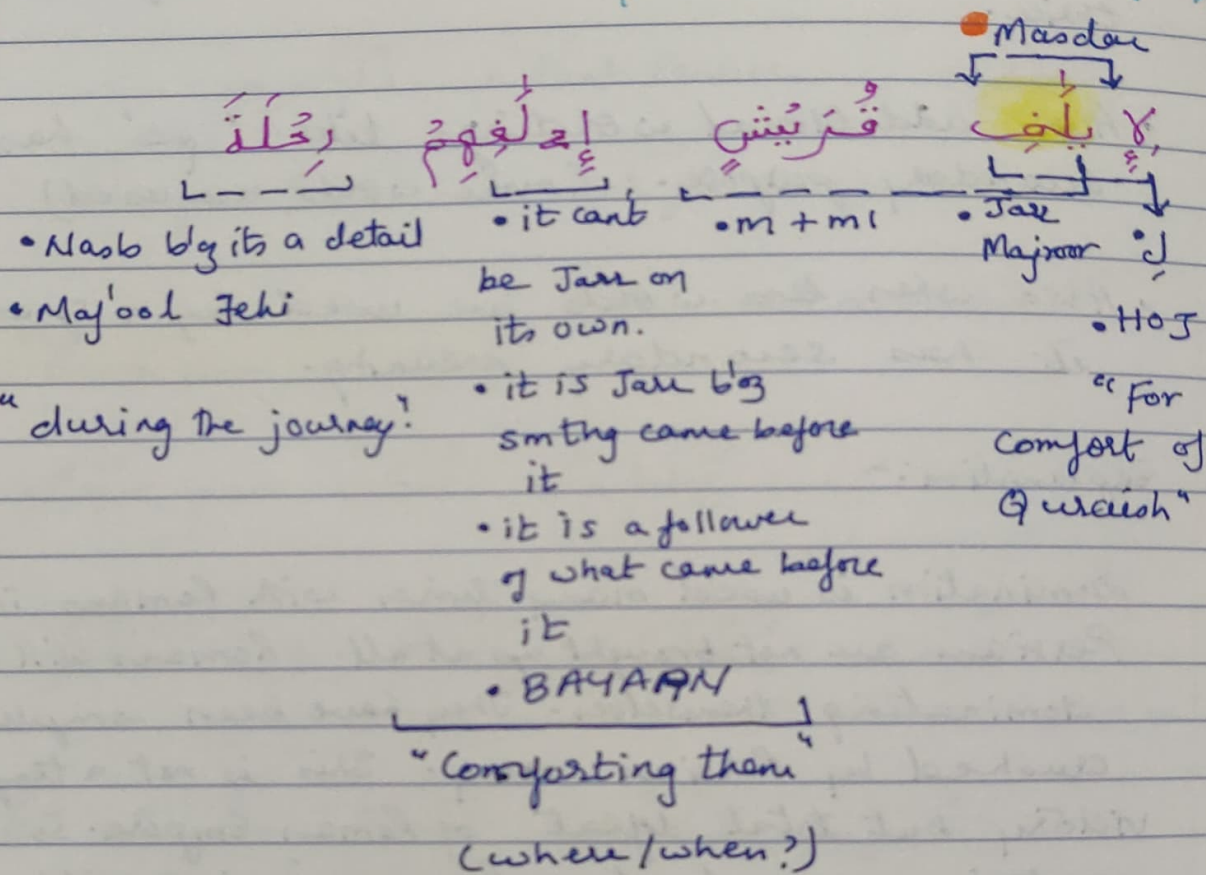 • Masdar
لِإِيلَٰفِ قُرَيْشٍ إِۦلَٰفِهِمْ رِحْلَةَ
• Jarr
Majroor
• لِ
• HOJ
"For
Comfort of
Quraish"
• m + mi
• it cant
be Jarr on
its own.
• it is Jarr b'oz
smthng came before
it
• it is a follower
of what came before
it
• BAYAAN
"Comforting them"
(where/when?)
• Nasb b'oz its a detail
• Maf'ool Fehi
"during the journey"